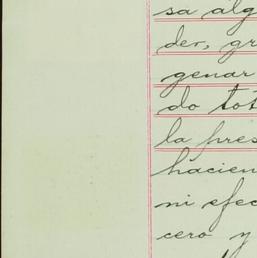 sa alg
der, gr
genar
do tot
la pres
hacien
ni efec
cero y